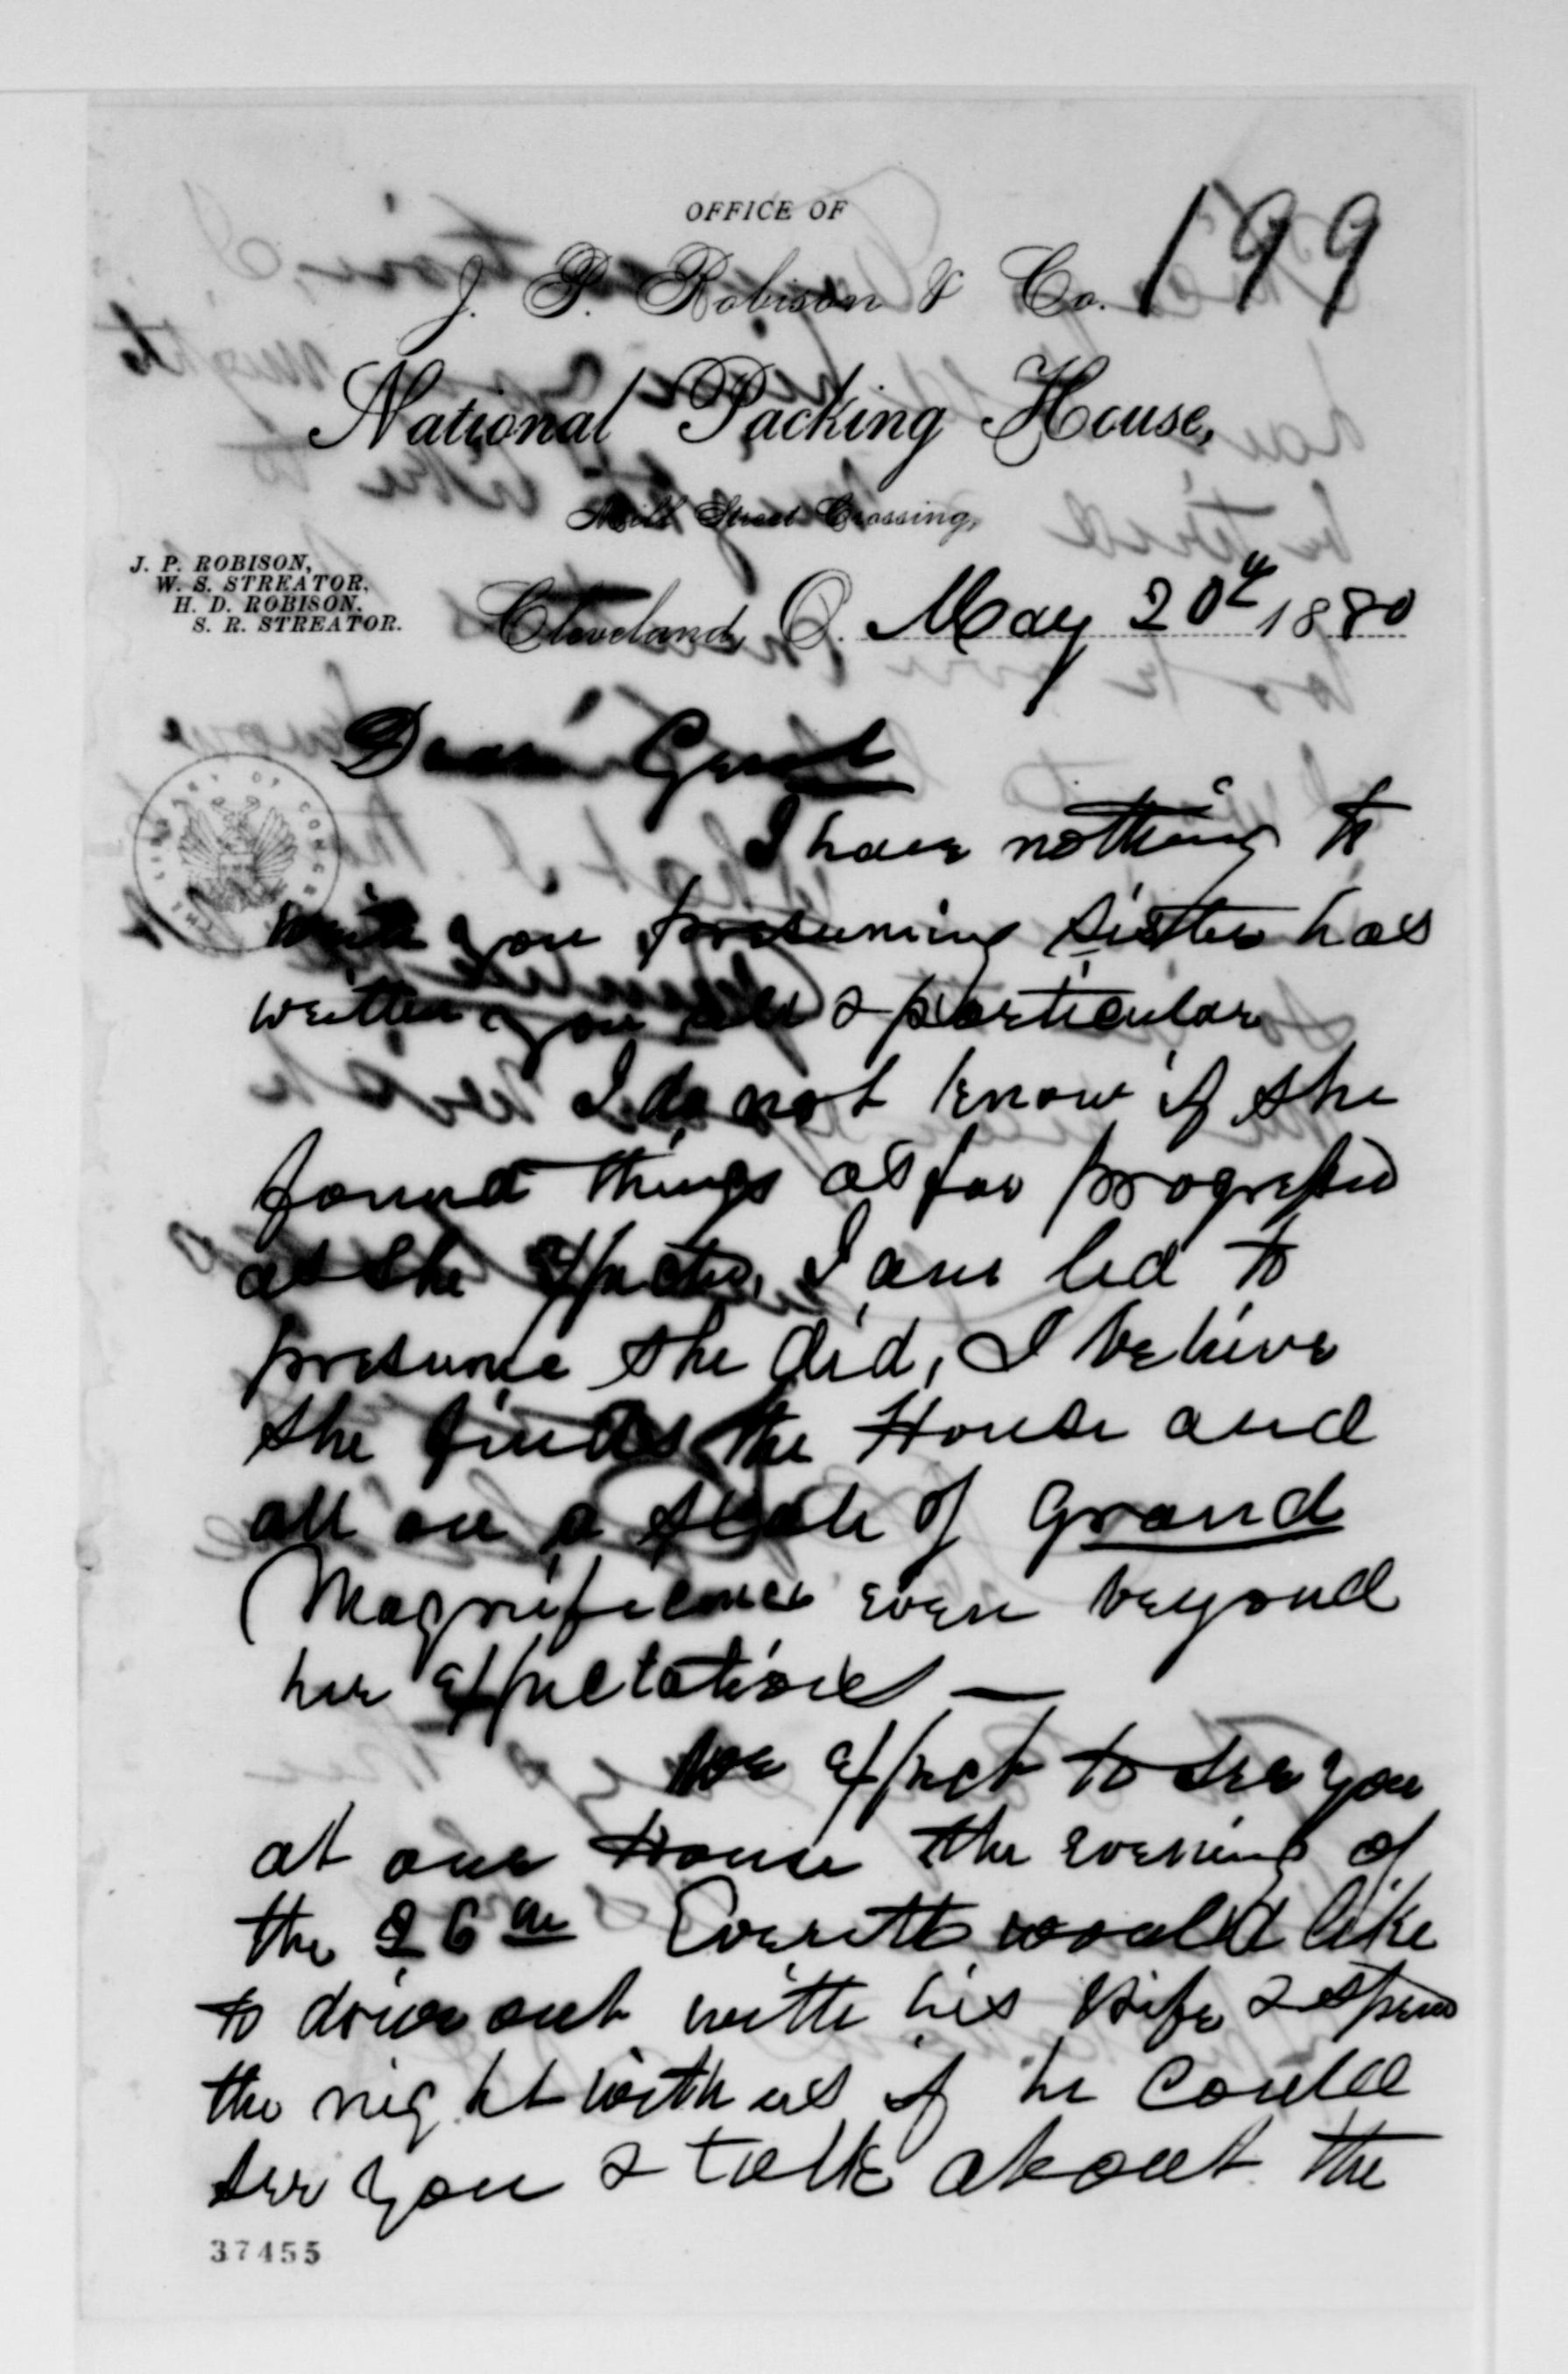 199
OFFICE OF
J. P. Robison & Co.
National Packing House,
Mill Street Crossing,
J. P. ROBISON,
W. S. STREATOR,
H. D. ROBISON,
S. R. STREATOR.
Cleveland, O. May 20th 1880
Dear Genl
I have nothing to
write you presuming sister has
written you all & particular
I do not know if she
found things as far progressed
as she Expected, I am led to
presume she did, I believe
she finds the House and
all on a scale of Grand
Magnificence even beyond
her Expectations —
We Expect to see you
at our House the evening of
the 26th Everett would like
to drive out with his Wife & spend
the night with us if he could
see you & talk about the
37455